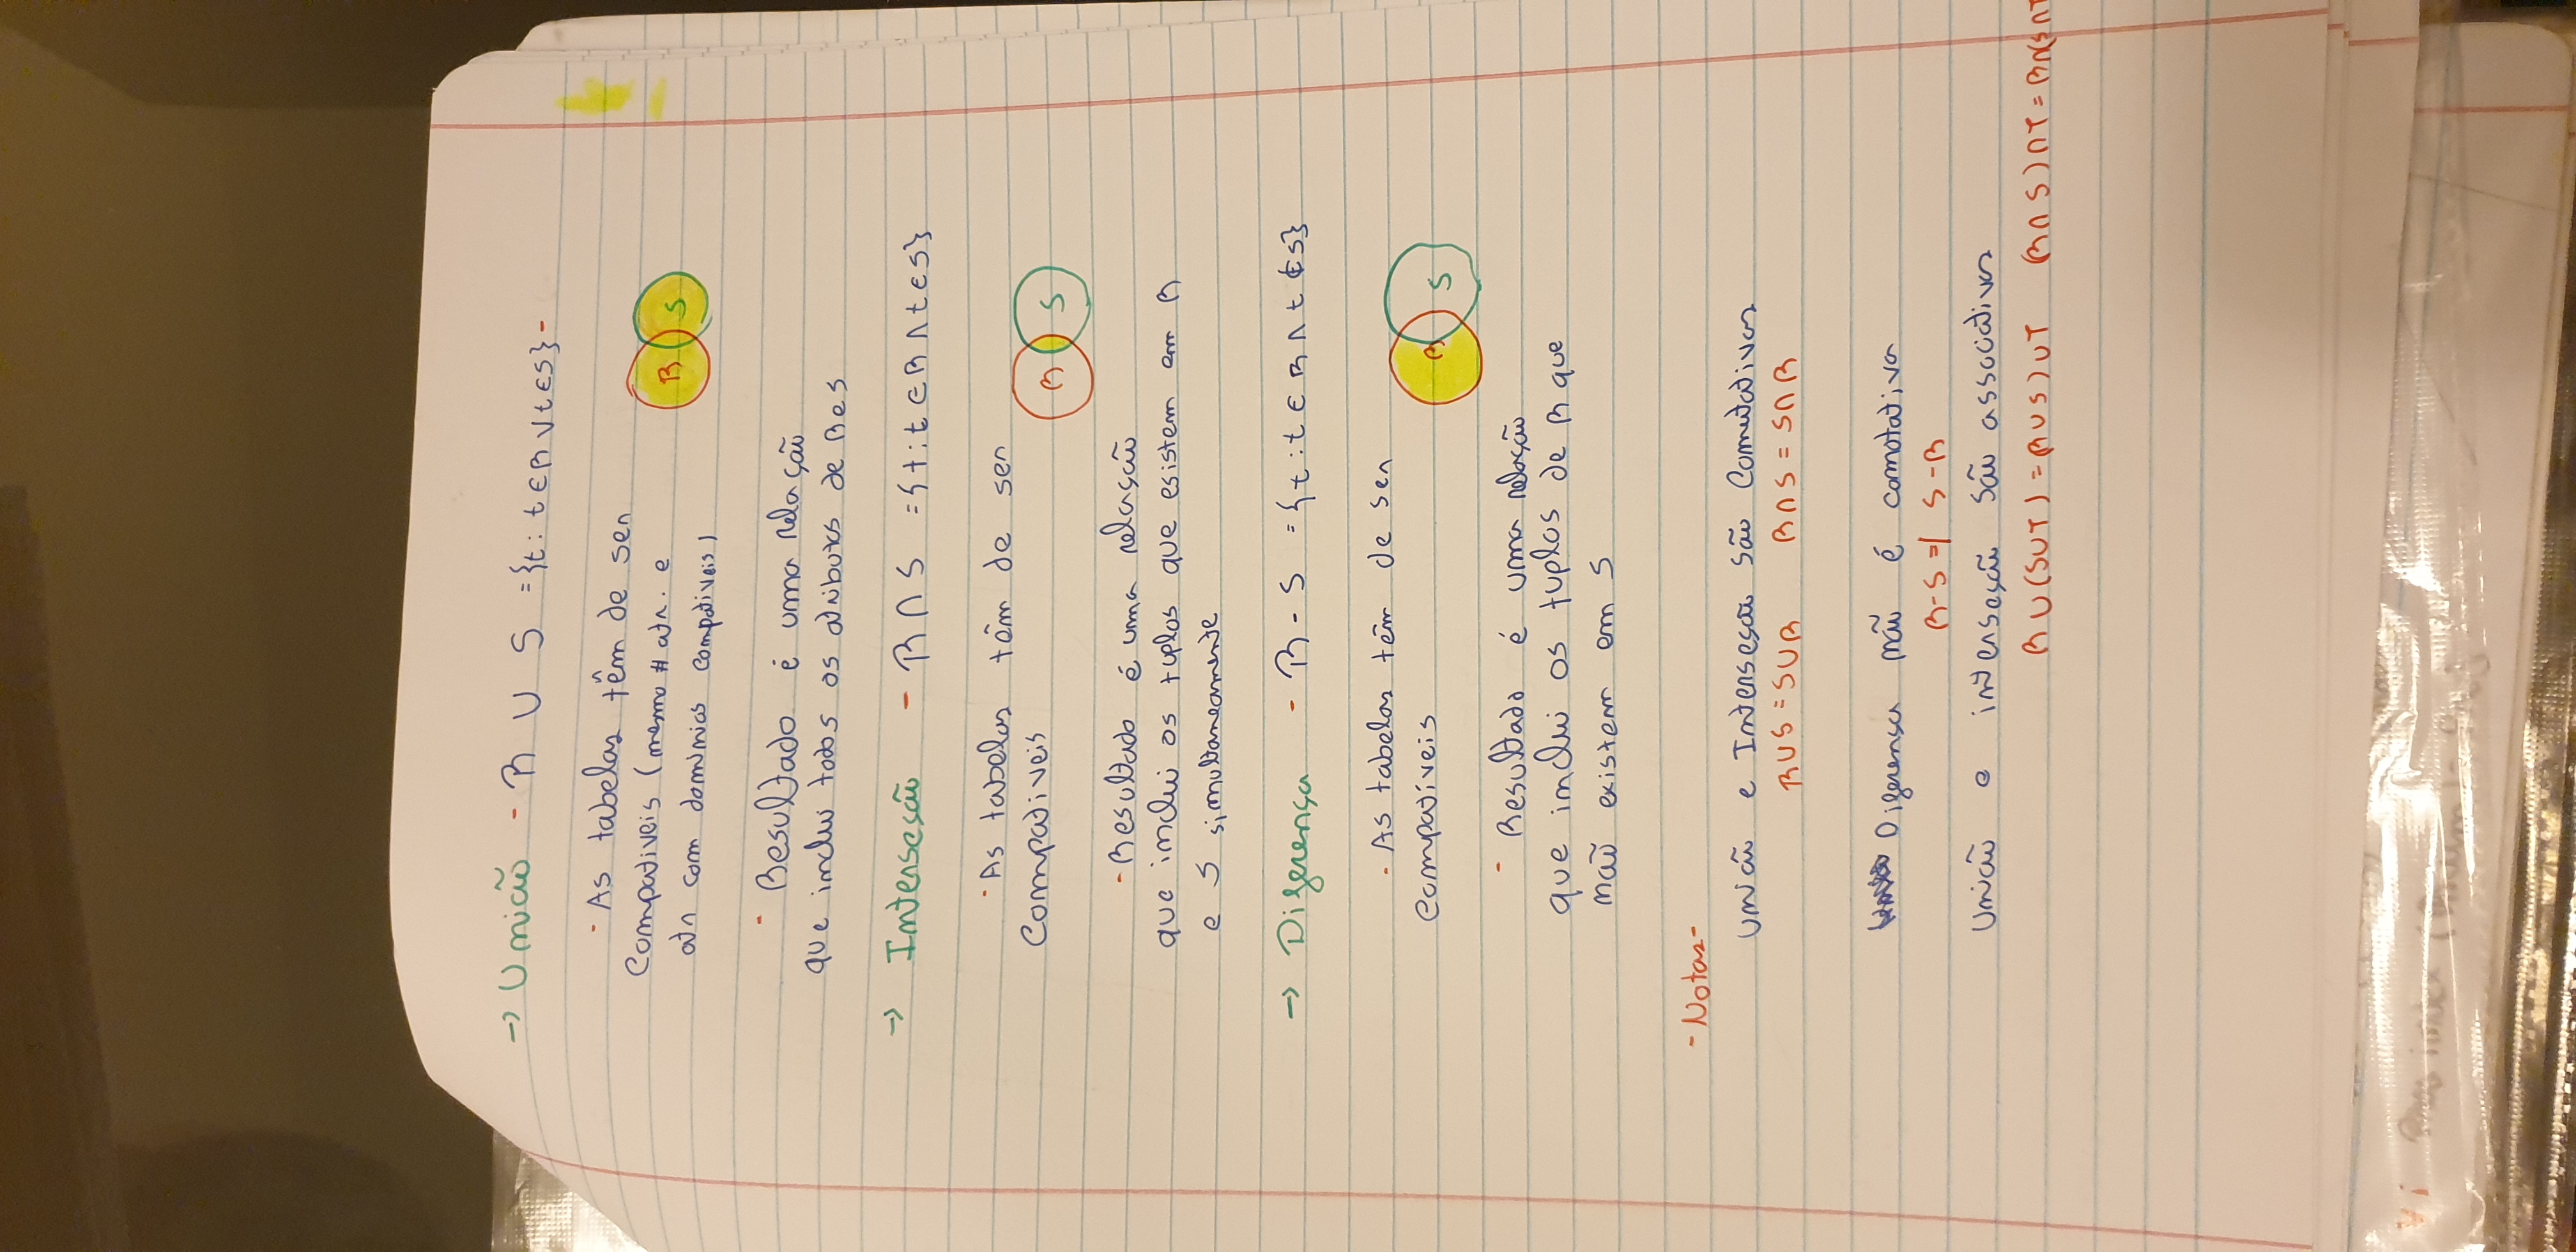 → União - R ∪ S = {t : t ∈ R ∨ t ∈ S} -
- As tabelas têm de ser
Compativeis (mesmo # atr. e
atr com dominios compativeis)
R S
- Resultado é uma relação
que inclui todos os atributos de R e S
→ Interseção - R ∩ S = {t : t ∈ R ∧ t ∈ S}
- As tabelas têm de ser
Compativeis
R S
- Resultado é uma relação
que inclui os tuplos que esistem em R
e S simultaneamente
→ Diferença - R - S = {t : t ∈ R ∧ t ∉ S}
- As tabelas têm de ser
Compatíveis
R S
- Resultado é uma relação
que inclui os tuplos de R que
não existem em S
- Notas -
União e Interseção são Comutativas
R ∪ S = S ∪ R R ∩ S = S ∩ R
Diferença não é comotativa
R - S =/ S - R
União e interseção são associativas
R ∪ (S ∪ T) = R ∪ S) ∪ T (R ∩ S) ∩ T = R ∩ (S ∩ T